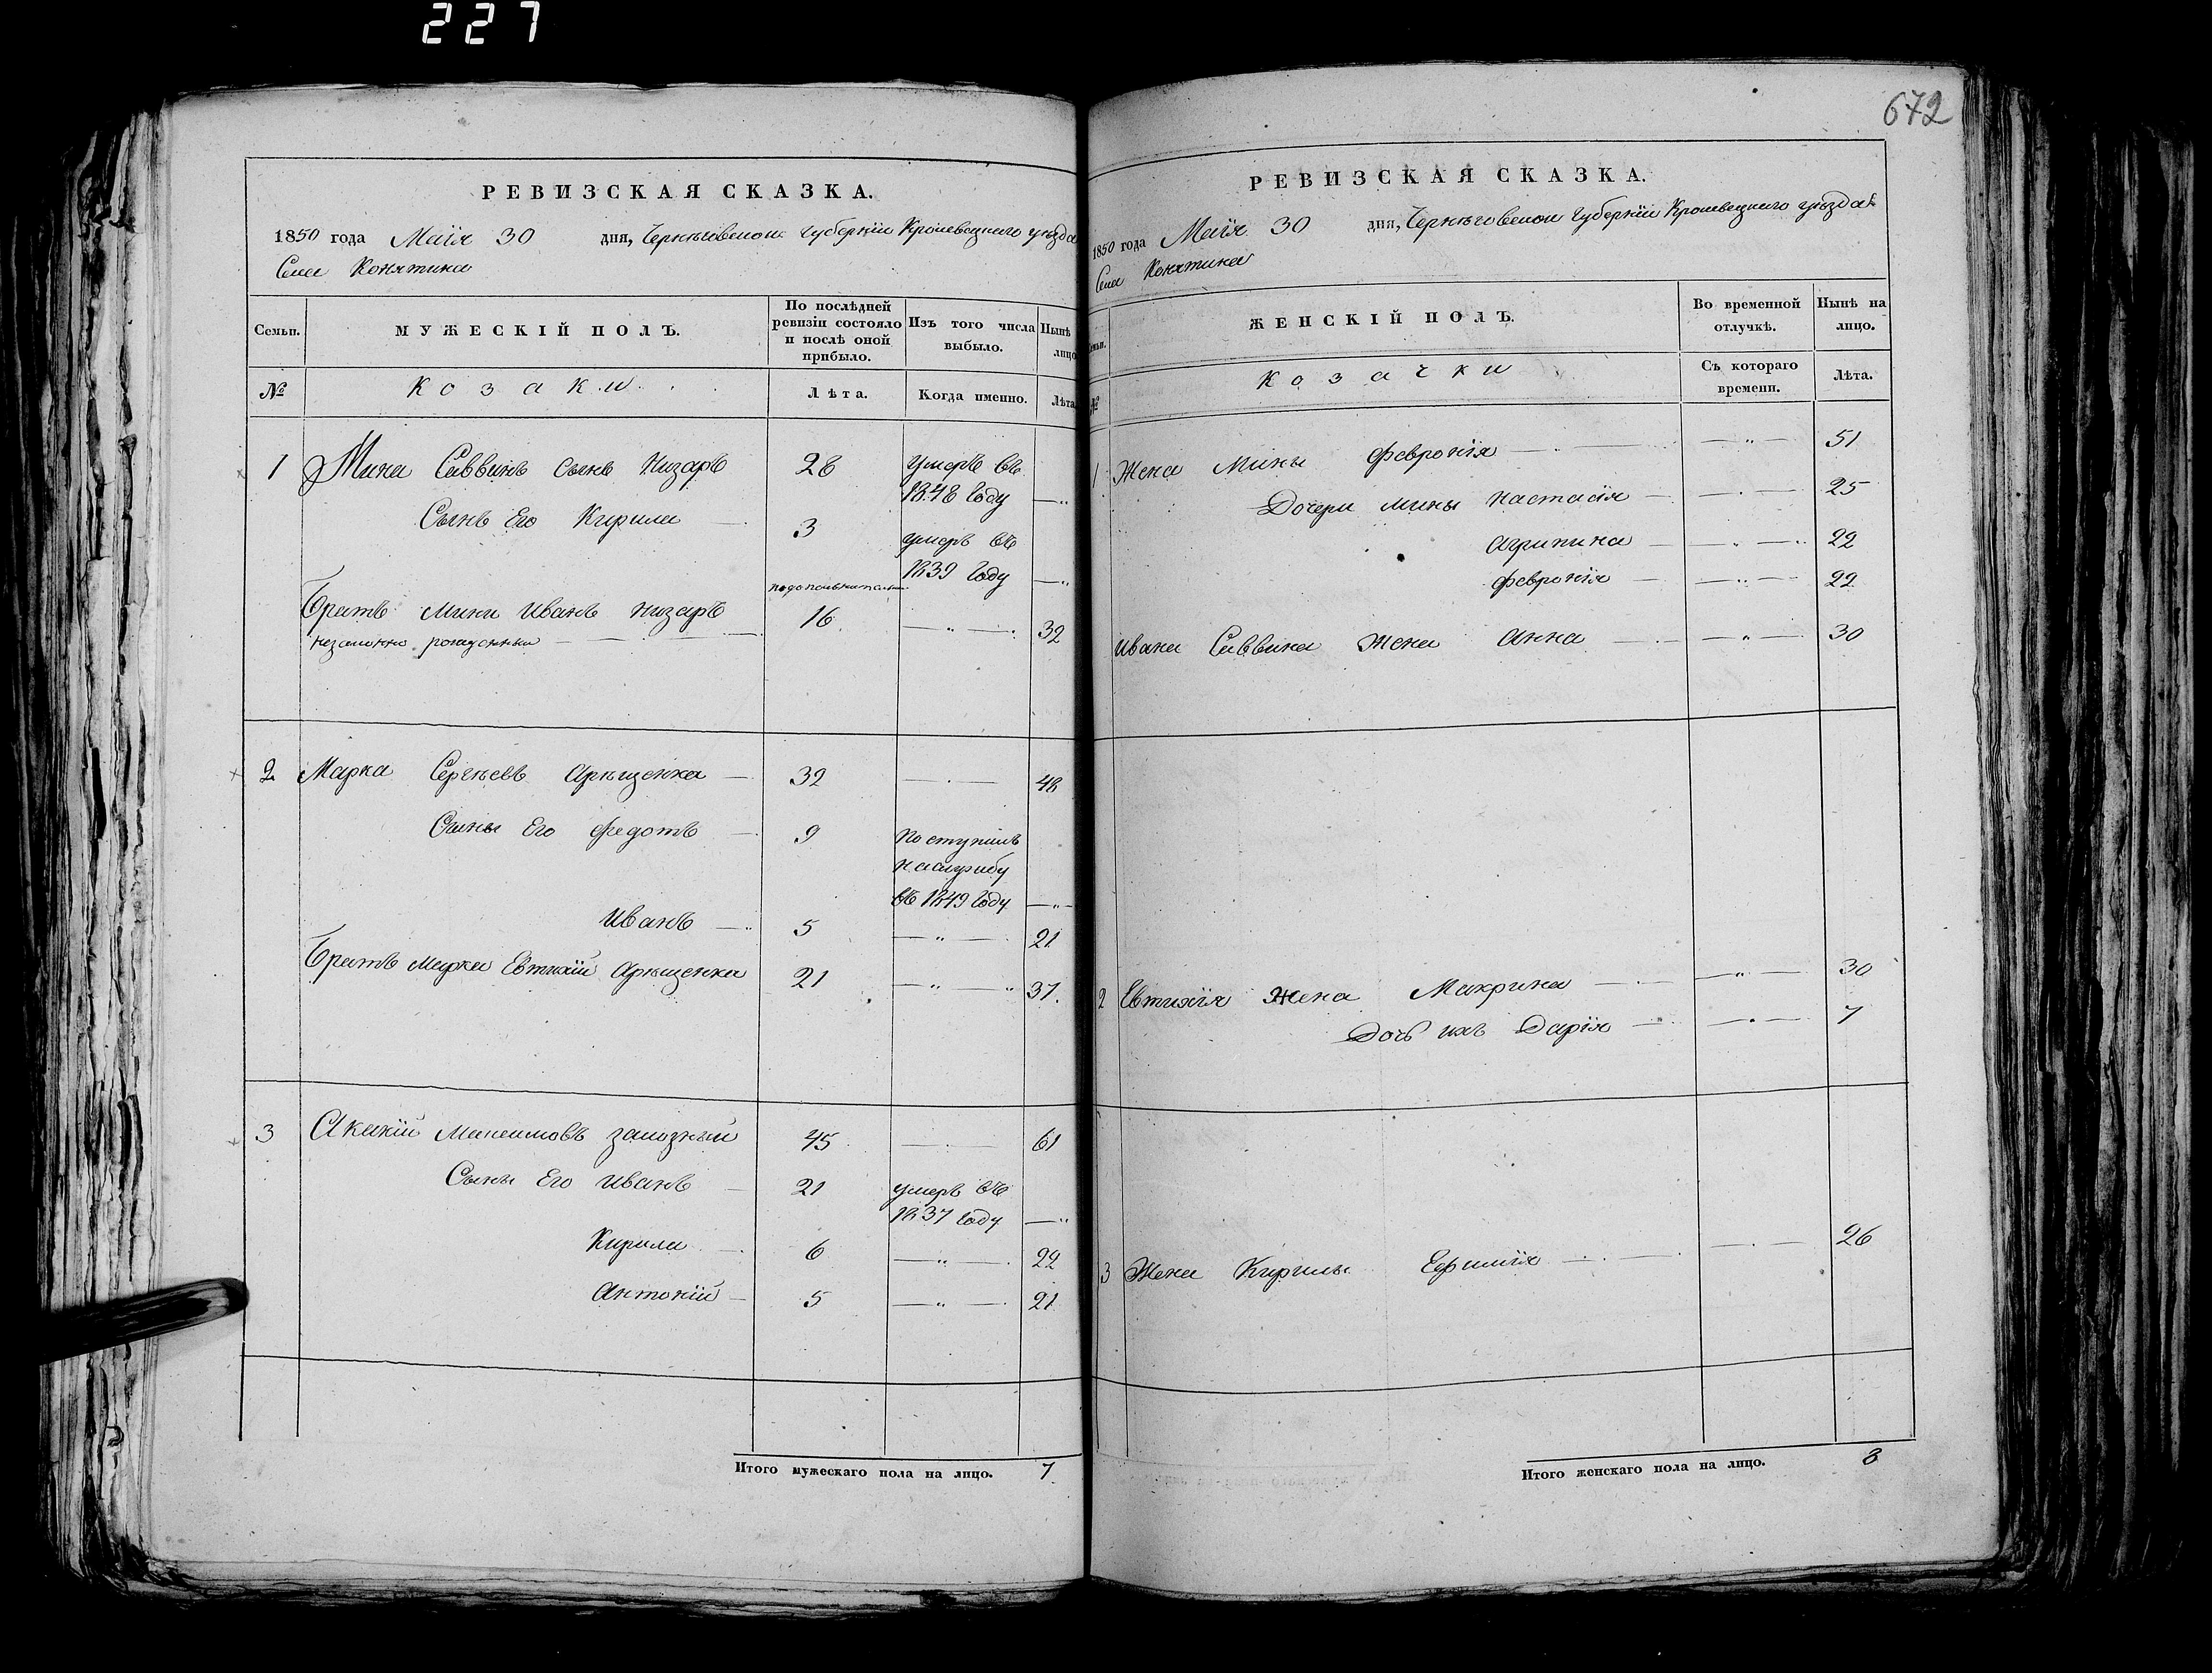 227
672
РЕВИЗСКАЯ СКАЗКА.
1850 года Маія 30 дня, Черниговской губерніи Кролевецкаго уѣзда
Села Конятина
Семьи. МУЖЕСКІЙ ПОЛЪ. По послѣдней ревизіи состояло и послѣ оной прибыло. Изъ того числа выбыло. Нынѣ лицо
№ Козаки Лѣта. Когда именно. Лѣта
1 Мина Саввинъ сынъ Низаръ 28 умеръ въ
1848 году
Сынъ Его Кирила 3 умеръ въ
1839 году
Братъ Мины Иванъ Низаръ 16 32
незаконно рожденный
2 Марка Сергѣевъ 32 48
Сыны Его Федотъ 9 поступилъ
на службу
въ 1849 году
Иванъ 5 21
Братъ Марка Евтихій 21 37.
3 Акакій Максимовъ 45 61
Сыны Его Иванъ 21 умеръ въ
1837 году
Кирила 6 22
Антоній 5 21
Итого мужескаго пола на лицо. 7
РЕВИЗСКАЯ СКАЗКА.
1850 года Маія 30 дня, Черниговской губерніи Кролевецкаго уѣзда
Села Конятина
ЖЕНСКІЙ ПОЛЪ. Во временной отлучкѣ. Нынѣ на лицо.
№ Козачки Съ котораго времени. Лѣта.
1 Жена Мины Февронія 51
Дочери Мины Настасія 25
Агрипина 22
Февронія 22
Ивана Саввина Жена Анна 30
2 Евтихія Жена Макрина 30
Дочь ихъ Дарія 7
3 Жена Кирилы Ефимія 26
Итого женскаго пола на лицо. 8